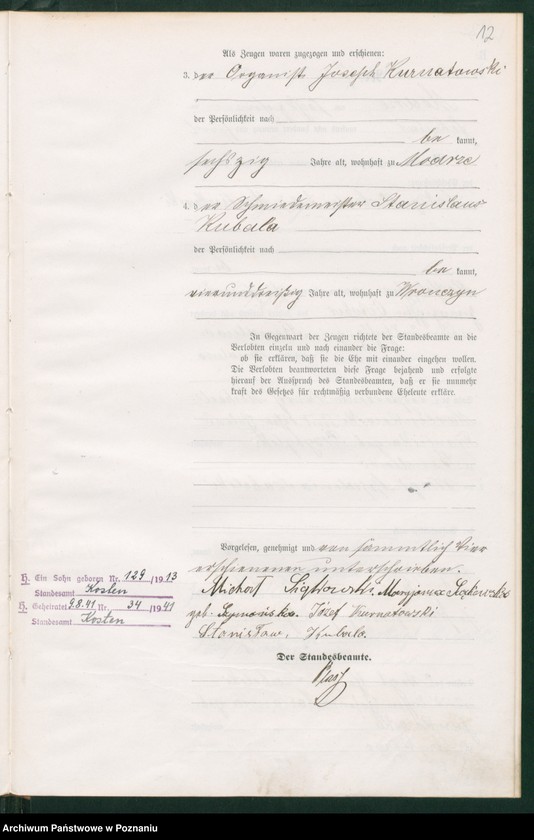 12
Als Zeugen waren zugezogen und erschienen:
3. der Organist Joseph Kurnatowski
der Persönlichkeit nach
be kannt,
sechszig Jahre alt, wohnhaft zu Modrze
4. der Schmiedemeister Stanislaus
Kubala
der Persönlichkeit nach
be kannt,
vierunddreißig Jahre alt, wohnhaft zu Wronczyn
In Gegenwart der Zeugen richtete der Standesbeamte an die
Verlobten einzeln und nach einander die Frage:
ob sie erklären, daß sie die Ehe mit einander eingehen wollen.
Die Verlobten beantworteten diese Frage bejahend und erfolgte
hierauf der Ausspruch des Standesbeamten, daß er sie nunmehr
kraft des Gesetzes für rechtmäßig verbundene Eheleute erkläre.
Vorgelesen, genehmigt und von sämmtlich vier
erschienenen unterschrieben.
Michał Marjanna
geb. Szymańska. Józef Kurnatowski
Stanisław Kubala
Der Standesbeamte.
H. Ein Sohn geboren Nr. 129/1913
Standesamt Kosten
H. Geheiratet 9.8.41 Nr. 34/1941
Standesamt Kosten
Archiwum Państwowe w Poznaniu